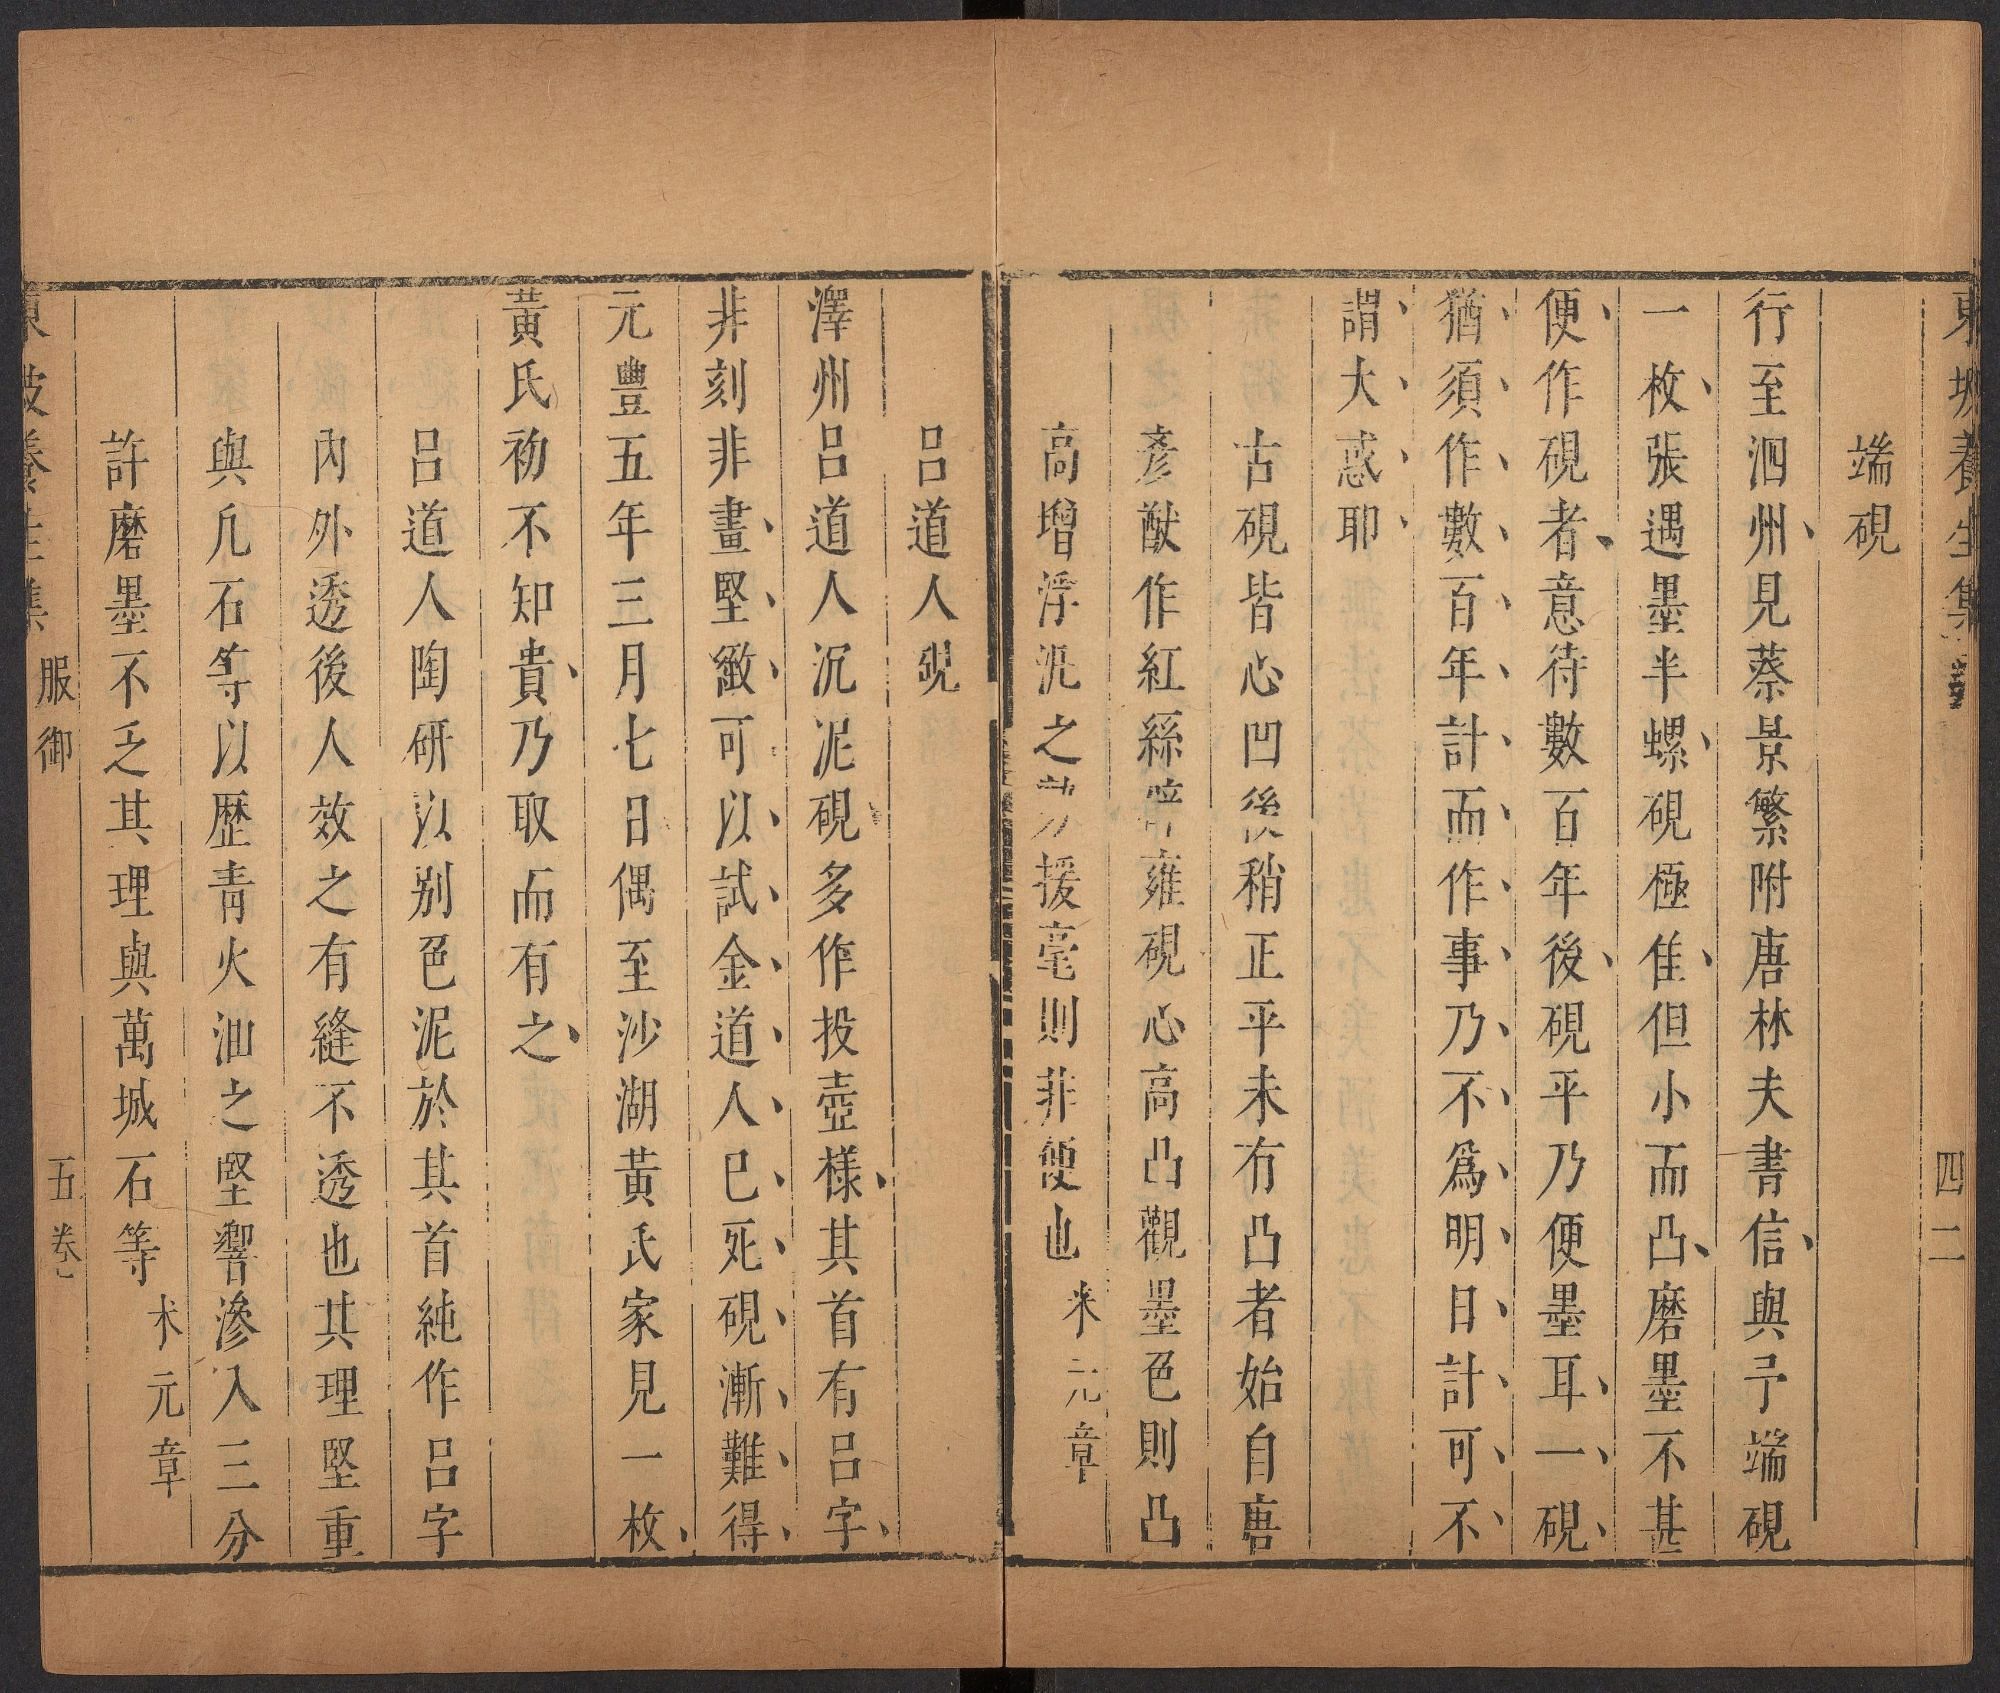 東坡養生集 四二
端硯
行至泗州見蔡景繁附唐林夫書信與予端硯
一枚張遇墨半螺硯極佳但小而凸磨墨不甚
便作硯者意待數百年後硯平乃便墨耳一硯
猶須作數百年計而作事乃不爲明日計可不
謂大惑耶
古硯皆心凹後稍正平未有凸者始自唐
彥猷作紅絲辟雍硯心高凸觀墨色則凸
高增浮泛之勢援毫則非便也 米元章
呂道人硯
澤州呂道人沉泥硯多作投壺樣其首有呂字
非刻非畫堅緻可以試金道人已死硯漸難得
元豐五年三月七日偶至沙湖黃氏家見一枚
黃氏初不知貴乃取而有之
呂道人陶研以别色泥於其首純作呂字
內外透後人效之有縫不透也其理堅重
與凡石等以歷青火油之堅響滲入三分
許磨墨不乏其理與萬城石等 米元章
東坡養生集 服御 五卷